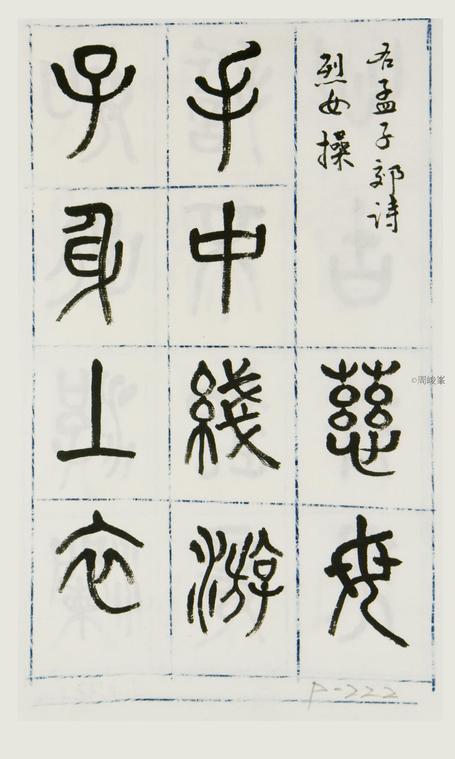 右孟子郊詩
烈女操
慈母
手中綫游
子身上衣
©周峻峯
P-222